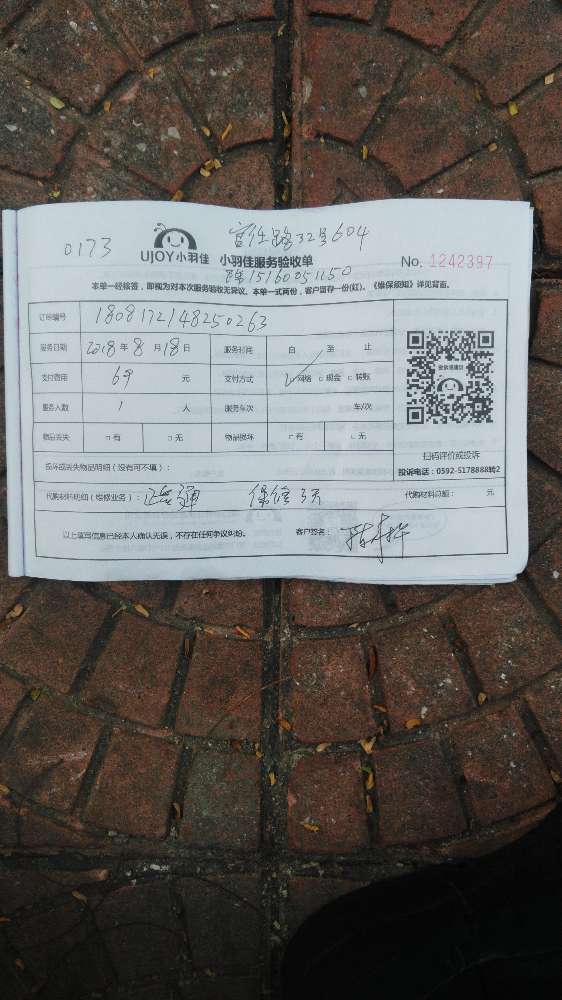 0173
UJOY小羽佳
富仕路32号604
小羽佳服务验收单
No. 1242397
陈15160051150
本单一经络答，即视为对本次服务验收无异议。本单一式两份，客户留存一份(红)。《维保须知》详见背面。
订单编号 1808172148250263
服务日期 2018年8月18日 服务时间 自 至 止
支付费用 69 元 支付方式 ☑网络 □现金 □转账
服务人数 1 人 服务车次 车/次
物品丢失 □有 □无 物品损坏 □有 □无
扫码评价或投诉
投诉电话：0592-5178888转2
损坏或丢失物品明细（没有可不填）：
代购材料明细（维修业务）： 通 保修3天 代购材料总额： 元
以上填写信息已经本人确认无误，不存在任何争议纠纷。 客户签名：